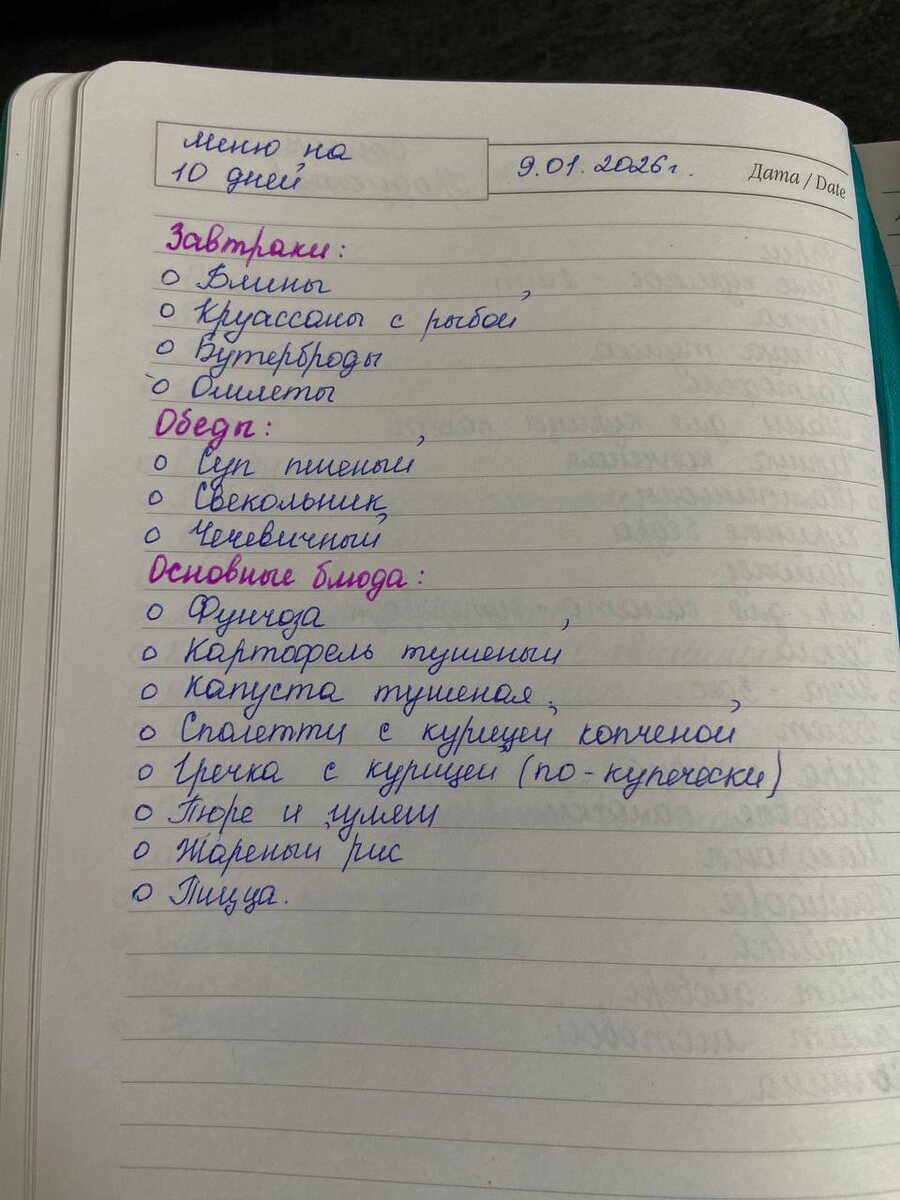 Меню на
10 дней
9.01.2026г.
Дата / Date
Завтраки:
о Блины
о Круассаны с рыбой
о Бутерброды
о Омлеты
Обеды:
о Суп пшеный
о Свекольник
о Чечевичный
Основные блюда:
о Фунчоза
о Картофель тушеный
о Капуста тушеная
о Спагетти с курицей копченой
о Гречка с курицей (по-купечески)
о Пюре и гуляш
о Жареный рис
о Пицца.